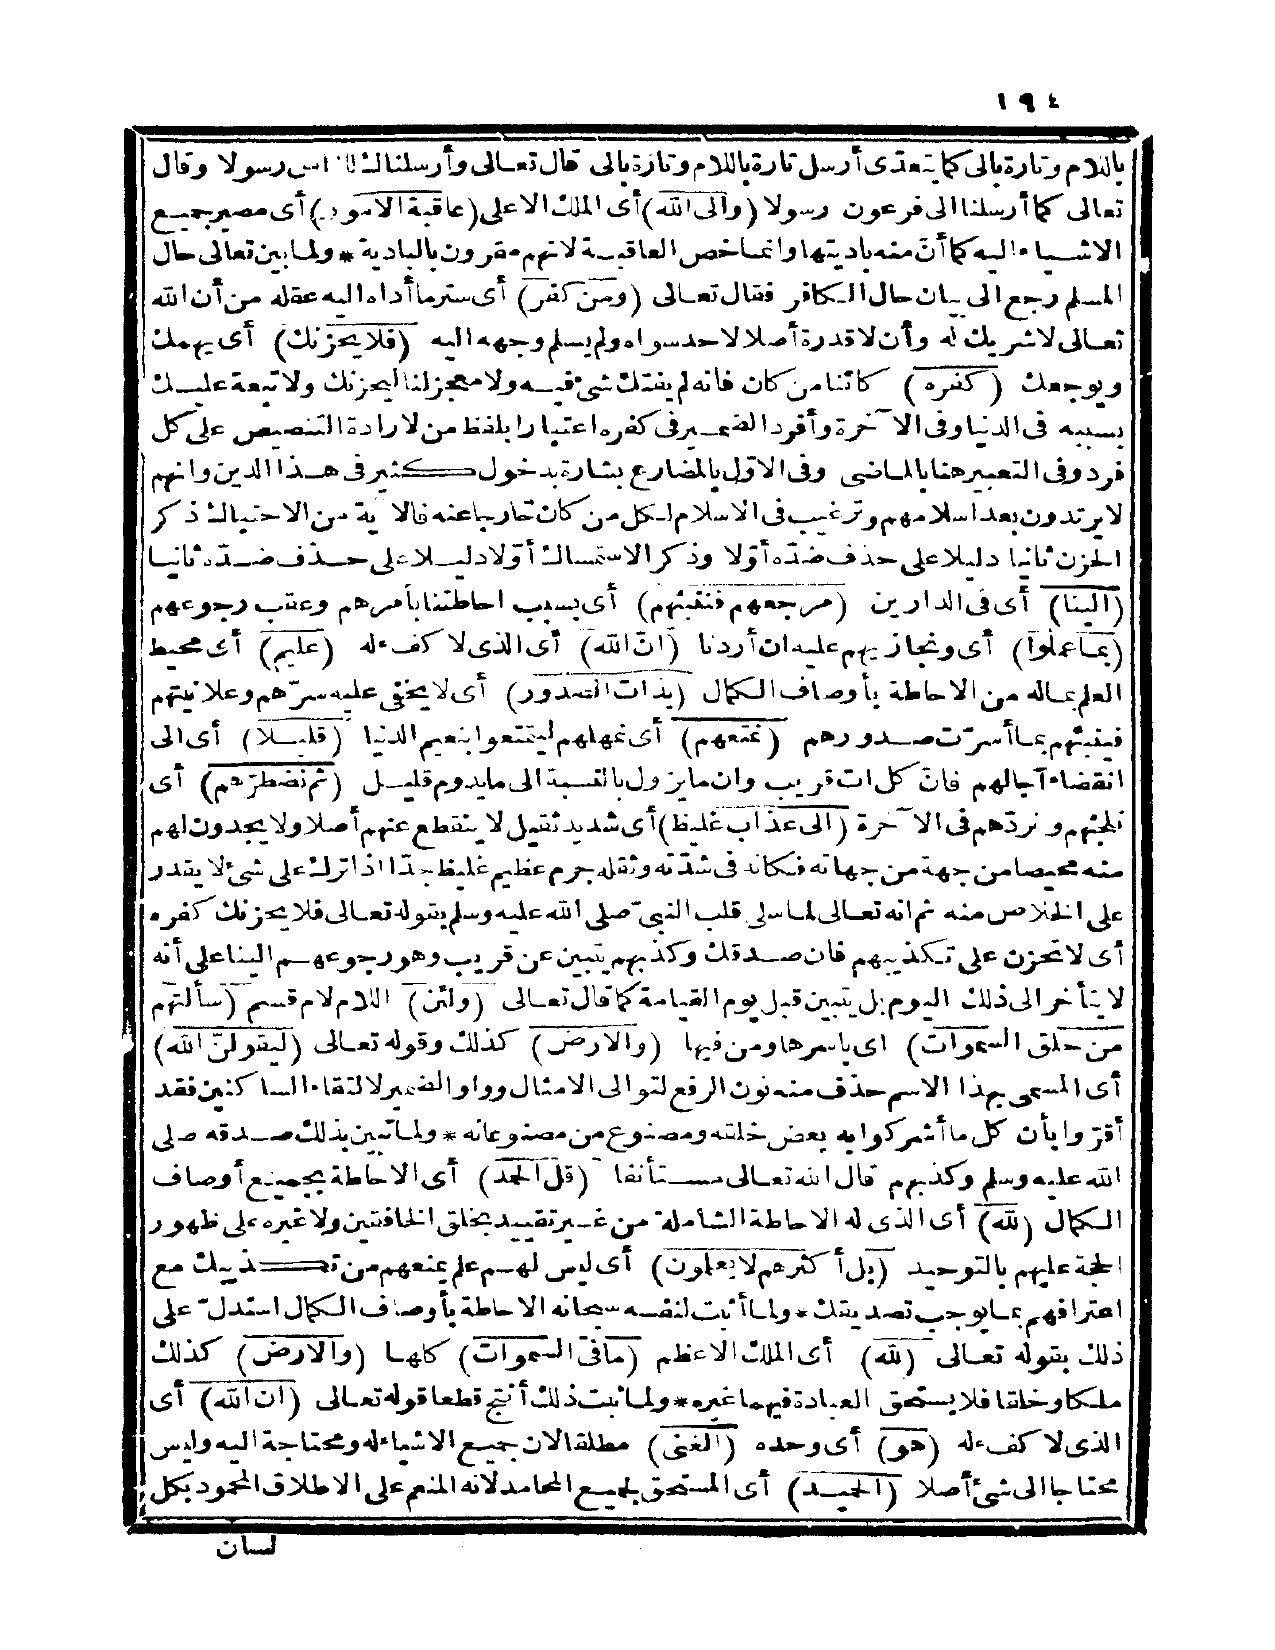 ١٩٤
باللام وتارة بالى كما يتعدى أرسل تارة باللام وتارة بالى قال تعالى وأرسلناك للناس رسولا وقال
تعالى كما أرسلنا الى فرعون رسولا (والى الله) أى الملك الاعلى (عاقبة الامور) أى مصير جميع
الاشياء اليه كما أنّ منه باديتها وانما خص العاقبة لانهم مقرون بالبادية * ولما بين تعالى حال
المسلم رجع الى بيان حال الكافر فقال تعالى (ومن كفر) أى ستر ما أداه اليه عقله من أن الله
تعالى لا شريك له وأن لا قدرة أصلا لاحد سواه ولم يسلم وجهه اليه (فلا يحزنك) أى يهمك
ويوجعك (كفره) كائنا من كان فانه لم يفتك شئ فيه ولا معجز لنا ليحزنك ولا تبعة عليك
بسببه فى الدنيا وفى الآخرة وأفرد الضمير فى كفره اعتبارا بلفظ من لارادة التنصيص على كل
فرد وفى التعبير هنا بالماضى وفى الاوّل بالمضارع بشارة بدخول كثير فى هذا الدين وانهم
لا يرتدون بعد اسلامهم وترغيب فى الاسلام لكل من كان خارجا عنه فالآية من الاحتباك ذكر
الحزن ثانيا دليلا على حذف ضدّه أوّلا وذكر الاستمساك أوّلا دليلا على حذف ضدّه ثانيا
(الينا) أى فى الدارين (مرجعهم فننبئهم) أى بسبب احاطتنا بأمرهم وعقب رجوعهم
(بما عملوا) أى ونجازيهم عليه ان أردنا (انّ الله) أى الذى لا كفء له (عليم) أى محيط
العلم بماله من الاحاطة بأوصاف الكمال (بذات الصدور) أى لا يخفى عليه سرّهم وعلانيتهم
فينبئهم بما أسرّت صدورهم (نمتعهم) أى نمهلهم ليتمتعوا بنعيم الدنيا (قليلا) أى الى
انقضاء آجالهم فانّ كل ات قريب وان ما يزول بالنسبة الى ما يدوم قليل (ثم نضطرّهم) أى
نلجئهم ونردّهم فى الآخرة (الى عذاب غليظ) أى شديد ثقيل لا ينقطع عنهم أصلا ولا يجدون لهم
منه محيصا من جهة من جهاته فكانه فى شدّته وثقله جرم عظيم غليظ جدّا اذا ترك على شئ لا يقدر
على الخلاص منه ثم انه تعالى لما سلى قلب النبىّ صلى الله عليه وسلم بقوله تعالى فلا يحزنك كفره
أى لا تحزن على تكذيبهم فان صدقك وكذبهم يتبين عن قريب وهو رجوعهم الينا على أنه
لا يتأخر الى ذلك اليوم بل يتبين قبل يوم القيامة كما قال تعالى (ولئن) اللام لام قسم (سألتهم
من خلق السموات) اى باسرها ومن فيها (والارض) كذلك وقوله تعالى (ليقولنّ الله)
أى المسمى بهذا الاسم حذف منه نون الرفع لتوالى الامثال وواو الضمير لالتقاء الساكنين فقد
أقرّوا بأن كل ما أشركوا به بعض خلقه ومصنوع من مصنوعاته * ولما تبين بذلك صدقه صلى
الله عليه وسلم وكذبهم قال الله تعالى مستأنفا (قل الحمد) أى الاحاطة بجميع أوصاف
الكمال (لله) أى الذى له الاحاطة الشاملة من غير تقييد بخلق الخافقين ولا غيره على ظهور
الحجة عليهم بالتوحيد (بل أكثرهم لا يعلمون) أى ليس لهم علم يمنعهم من تكذيبك مع
اعترافهم بما يوجب تصديقك * ولما أثبت لنفسه سبحانه الاحاطة بأوصاف الكمال استدل على
ذلك بقوله تعالى (لله) أى الملك الاعظم (ما فى السموات) كلها (والارض) كذلك
ملكا وخلقا فلا يستحق العبادة فيهما غيره * ولما ثبت ذلك أنتج قطعا قوله تعالى (ان الله) أى
الذى لا كفء له (هو) أى وحده (الغنى) مطلقا لان جميع الاشياء له ومحتاجة اليه وليس
محتاجا الى شئ أصلا (الحميد) أى المستحق لجميع المحامد لانه المنعم على الاطلاق المحمود بكل
لسان